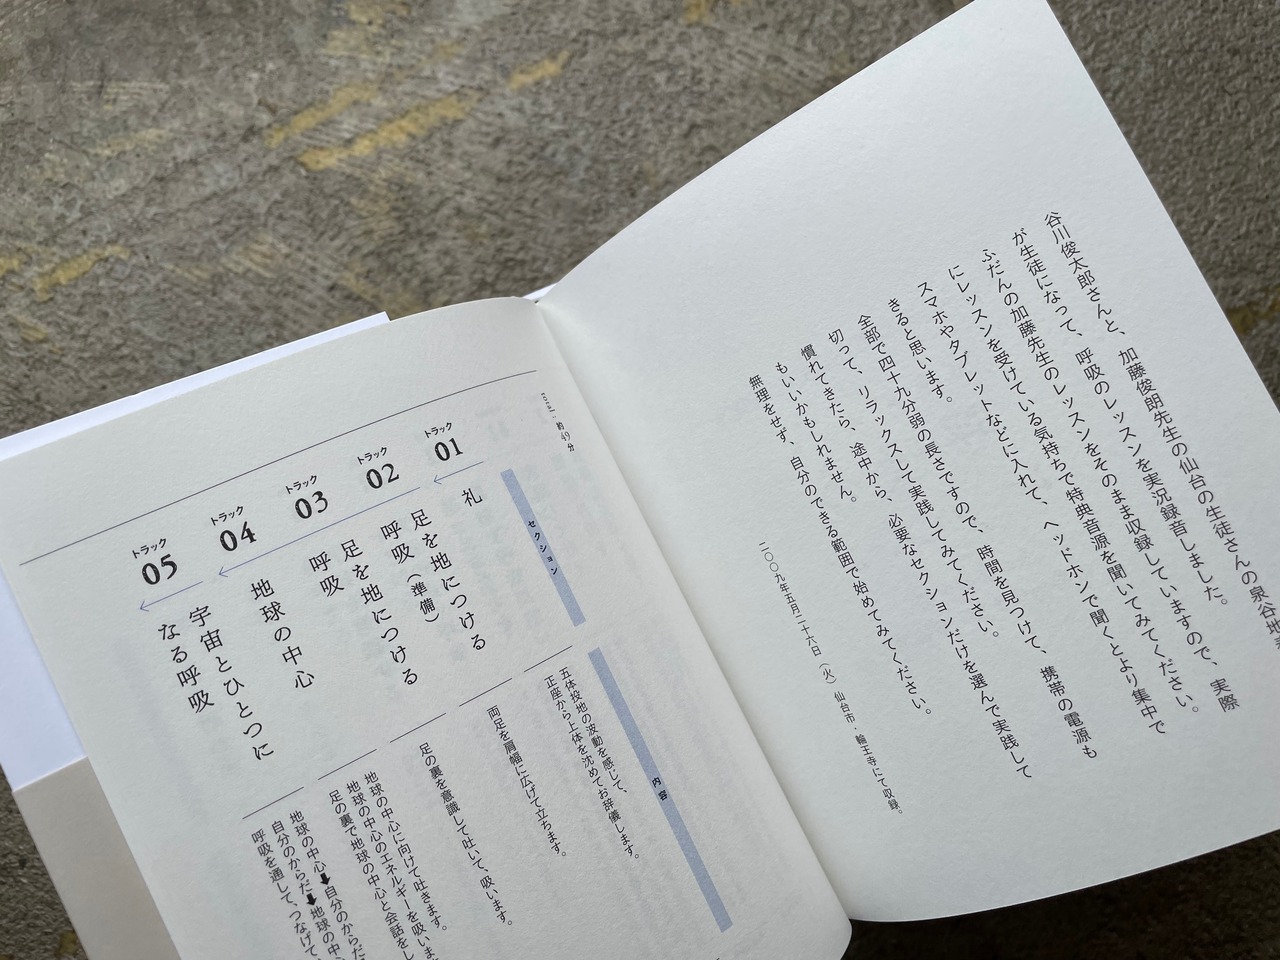 谷川俊太郎さんと、加藤俊朗先生の仙台の生徒さんの泉谷地
が生徒になって、呼吸のレッスンを実況録音しました。
ふだんの加藤先生のレッスンをそのまま収録していますので、実際
にレッスンを受けている気持ちで特典音源を聞いてみてください。
スマホやタブレットなどに入れて、ヘッドホンで聞くとより集中で
きると思います。
全部で四十九分弱の長さですので、時間を見つけて、携帯の電源も
切って、リラックスして実践してみてください。
慣れてきたら、途中から、必要なセクションだけを選んで実践して
もいいかもしれません。
無理をせず、自分のできる範囲で始めてみてください。
二〇〇九年五月二十六日(火)仙台市・輪王寺にて収録。
約49分
セクション
内容
トラック
01
礼
五体投地の波動を感じて、
正座から上体を沈めてお辞儀します。
トラック
02
足を地につける
呼吸(準備)
両足を肩幅に広げて立ちます。
トラック
03
足を地につける
呼吸
足の裏を意識して吐いて、吸います。
トラック
04
地球の中心
地球の中心に向けて吐きます。
地球の中心のエネルギーを吸いま
足の裏で地球の中心と会話をし
トラック
05
宇宙とひとつに
なる呼吸
地球の中心➡自分のからだ
自分のからだ➡地球の中
呼吸を通して、つなげて、